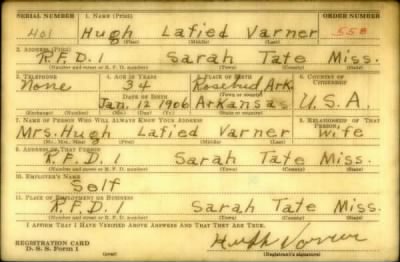 SERIAL NUMBER 1. NAME (Print) ORDER NUMBER
401 Hugh Lafied Varner 558
(First) (Middle) (Last)
2. ADDRESS (Print)
R.F.D. 1 Sarah Tate Miss.
(Number and street or R. F. D. number) (Town) (County) (State)
3. TELEPHONE 4. AGE IN YEARS 5. PLACE OF BIRTH 6. COUNTRY OF CITIZENSHIP
None 34 Rosebud Ark.
DATE OF BIRTH
Jan. 12 1906 Arkansas U.S.A.
(Exchange) (Number) (Mo.) (Day) (Yr.) (State or country)
7. NAME OF PERSON WHO WILL ALWAYS KNOW YOUR ADDRESS 8. RELATIONSHIP OF THAT PERSON
Mrs. Hugh Lafied Varner wife
(Mr., Mrs., Miss) (First) (Middle) (Last)
9. ADDRESS OF THAT PERSON
R.F.D. 1 Sarah Tate Miss.
(Number and street or R. F. D. number) (Town) (County) (State)
10. EMPLOYER'S NAME
Self
11. PLACE OF EMPLOYMENT OR BUSINESS
R.F.D. 1 Sarah Tate Miss.
(Number and street or R. F. D. number) (Town) (County) (State)
I AFFIRM THAT I HAVE VERIFIED ABOVE ANSWERS AND THAT THEY ARE TRUE.
REGISTRATION CARD
D. S. S. Form 1 (over) Hugh Varner
(Registrant's signature)